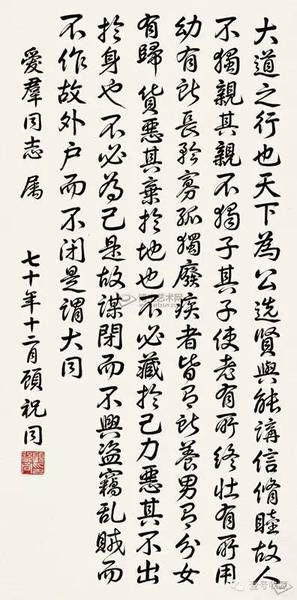 大道之行也天下為公选賢與能講信脩睦故人
不獨親其親不獨子其子使老有所終壮有所用
幼有所長矜寡孤獨廢疾者皆有所養男有分女
有歸貨惡其棄於地也不必藏於己力惡其不出
於身也不必為己是故謀閉而不興盜竊乱賊而
不作故外戶而不閉是謂大同
愛羣同志属
七十年十二月顧祝同